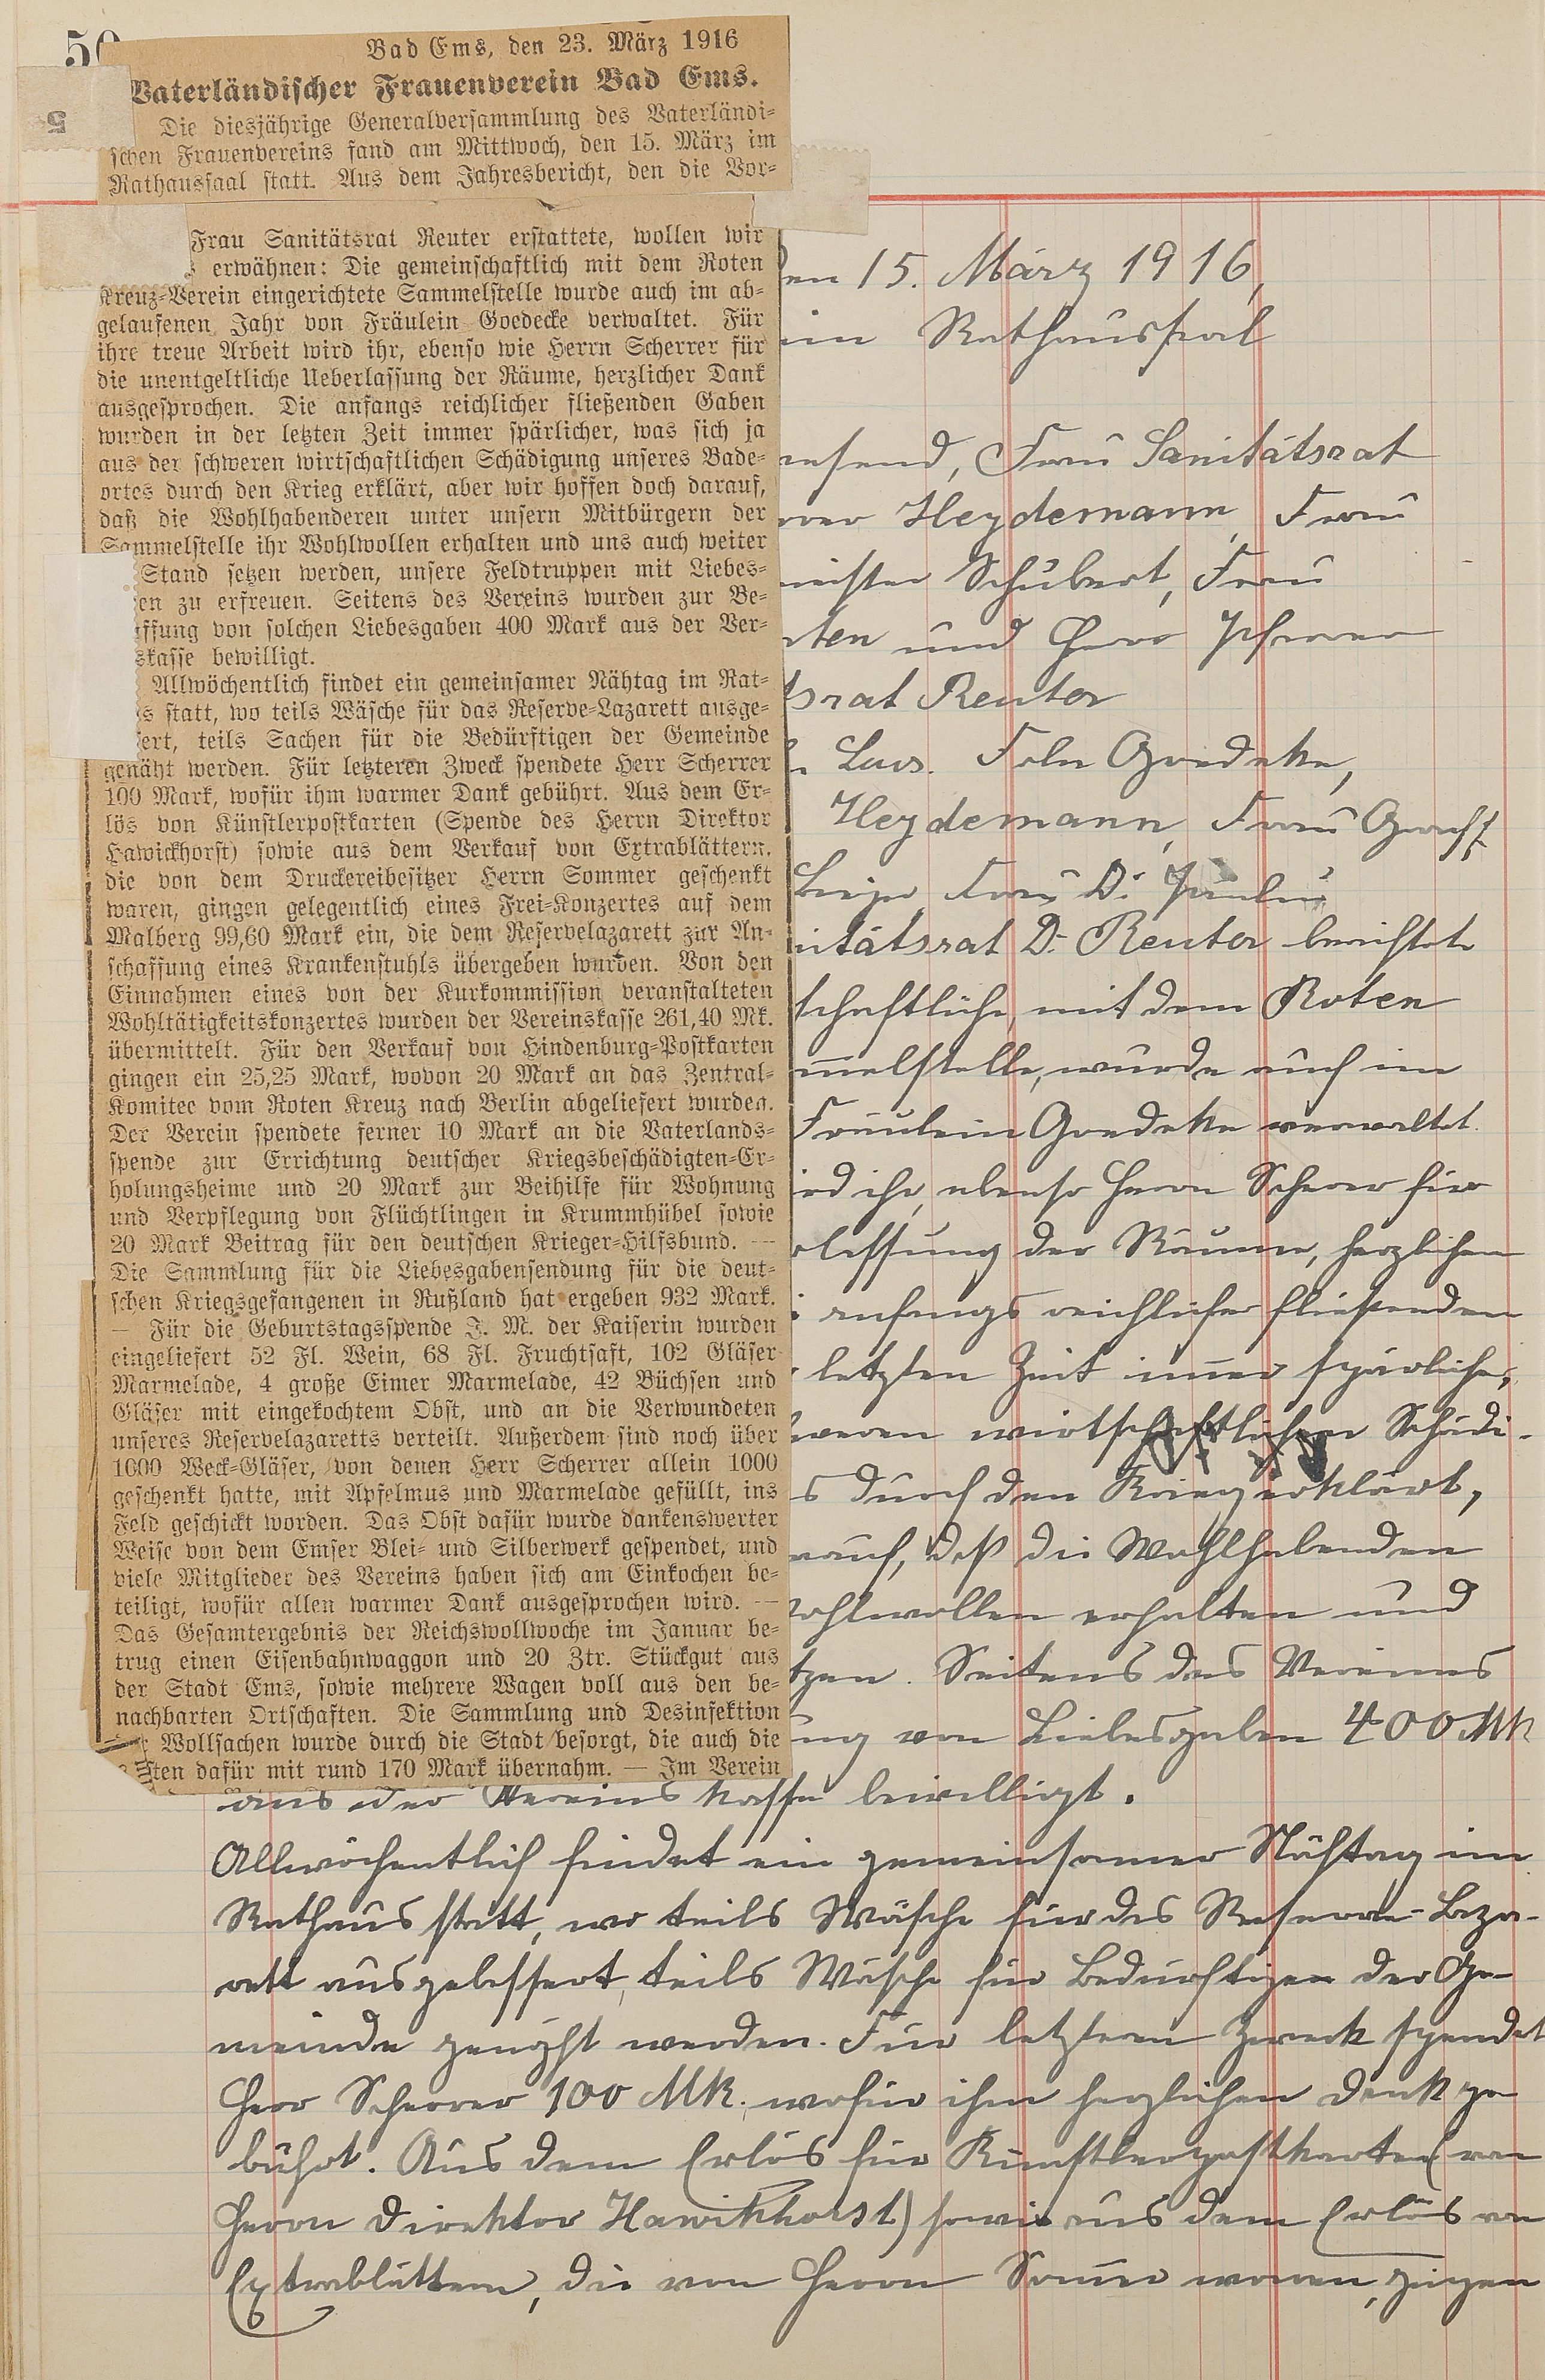 50
5
Bad Ems, den 23. März 1916
Vaterländischer Frauenverein Bad Ems.
Die diesjährige Generalversammlung des Vaterländi-
schen Frauenvereins fand am Mittwoch, den 15. März im
Rathaussaal statt. Aus dem Jahresbericht, den die Vor-
Frau Sanitätsrat Reuter erstattete, wollen wir
erwähnen: Die gemeinschaftlich mit dem Roten
Kreuz-Verein eingerichtete Sammelstelle wurde auch im ab-
gelaufenen Jahr von Fräulein Goedecke verwaltet. Für
ihre treue Arbeit wird ihr, ebenso wie Herrn Scherrer für
die unentgeltliche Ueberlassung der Räume, herzlicher Dank
ausgesprochen. Die anfangs reichlicher fließenden Gaben
wurden in der letzten Zeit immer spärlicher, was sich ja
aus der schweren wirtschaftlichen Schädigung unseres Bade-
ortes durch den Krieg erklärt, aber wir hoffen doch darauf,
daß die Wohlhabenderen unter unsern Mitbürgern der
Sammelstelle ihr Wohlwollen erhalten und uns auch weiter
Stand setzen werden, unsere Feldtruppen mit Liebes-
en zu erfreuen. Seitens des Vereins wurden zur Be-
ffung von solchen Liebesgaben 400 Mark aus der Ver-
skasse bewilligt.
Allwöchentlich findet ein gemeinsamer Nähtag im Rat-
s statt, wo teils Wäsche für das Reserve-Lazarett ausge-
sert, teils Sachen für die Bedürftigen der Gemeinde
genäht werden. Für letzteren Zweck spendete Herr Scherrer
100 Mark, wofür ihm warmer Dank gebührt. Aus dem Er-
lös von Künstlerpostkarten (Spende des Herrn Direktor
Hawickhorst) sowie aus dem Verkauf von Extrablättern,
die von dem Druckereibesitzer Herrn Sommer geschenkt
waren, gingen gelegentlich eines Frei-Konzertes auf dem
Malberg 99,60 Mark ein, die dem Reservelazarett zur An-
schaffung eines Krankenstuhls übergeben wurden. Von den
Einnahmen eines von der Kurkommission veranstalteten
Wohltätigkeitskonzertes wurden der Vereinskasse 261,40 Mk.
übermittelt. Für den Verkauf von Hindenburg-Postkarten
gingen ein 25,25 Mark, wovon 20 Mark an das Zentral-
Komitee vom Roten Kreuz nach Berlin abgeliefert wurden.
Der Verein spendete ferner 10 Mark an die Vaterlands-
spende zur Errichtung deutscher Kriegsbeschädigten-Er-
holungsheime und 20 Mark zur Beihilfe für Wohnung
und Verpflegung von Flüchtlingen in Krummhübel sowie
20 Mark Beitrag für den deutschen Krieger-Hilfsbund. —
Die Sammlung für die Liebesgabensendung für die deut-
schen Kriegsgefangenen in Rußland hat ergeben 932 Mark.
— Für die Geburtstagsspende I. M. der Kaiserin wurden
eingeliefert 52 Fl. Wein, 68 Fl. Fruchtsaft, 102 Gläser
Marmelade, 4 große Eimer Marmelade, 42 Büchsen und
Gläser mit eingekochtem Obst, und an die Verwundeten
unseres Reservelazaretts verteilt. Außerdem sind noch über
1000 Weck-Gläser, von denen Herr Scherrer allein 1000
geschenkt hatte, mit Apfelmus und Marmelade gefüllt, ins
Feld geschickt worden. Das Obst dafür wurde dankenswerter
Weise von dem Emser Blei- und Silberwerk gespendet, und
viele Mitglieder des Vereins haben sich am Einkochen be-
teiligt, wofür allen warmer Dank ausgesprochen wird. —
Das Gesamtergebnis der Reichswollwoche im Januar be-
trug einen Eisenbahnwaggon und 20 Ztr. Stückgut aus
der Stadt Ems, sowie mehrere Wagen voll aus den be-
nachbarten Ortschaften. Die Sammlung und Desinfektion
Wollsachen wurde durch die Stadt besorgt, die auch die
ten dafür mit rund 170 Mark übernahm. — Im Verein
en 15. März 1916,
im Rathaussaal
wesend, Frau Sanitätsrat
rrer Heydemann, Frau
meister Schubert, Frau
rten und Herr Pfarrer
tsrat Reuter
Laus. Frln Goedeke,
Heydemann, Frau Graeff
Frau Dr
nitätsrat Dr. Reuter berichtet
schaftliche, mit dem Roten
melstelle, wurde auch im
Fräulein Goedeke verwaltet.
ird ihr, ebenso Herrn Scherer für
rlassung der Räume, herzlichen
anfangs reichlicher fließenden
letzten Zeit immer spärlicher,
weren wirtschaftlichen Schädi-
s durch den Krieg erklärt,
rauf, daß die Wohlhabenden
ohlwollen erhalten und
tzen. Seitens des Vereines
ng von Liebesgaben 400 Mk
aus der Vereinskasse bewilligt.
Allwöchentlich findet ein gemeinsamer Nähtag im
Rathaus statt, wo teils Wäsche für das Reserve-Laza-
rett ausgebessert, teils Wäsche für Bedürftigen der Ge-
meinde genäht werden. Für letzteren Zweck spendet
Herr Scherrer 100 Mk. wofür ihm herzlichen Dank ge
bührt. Aus dem Erlös für Künstlerpostkarten (von
Herrn Direktor Hawikhorst) sowie aus dem Erlös von
Extrablättern, die von Herrn Sommer waren, gingen